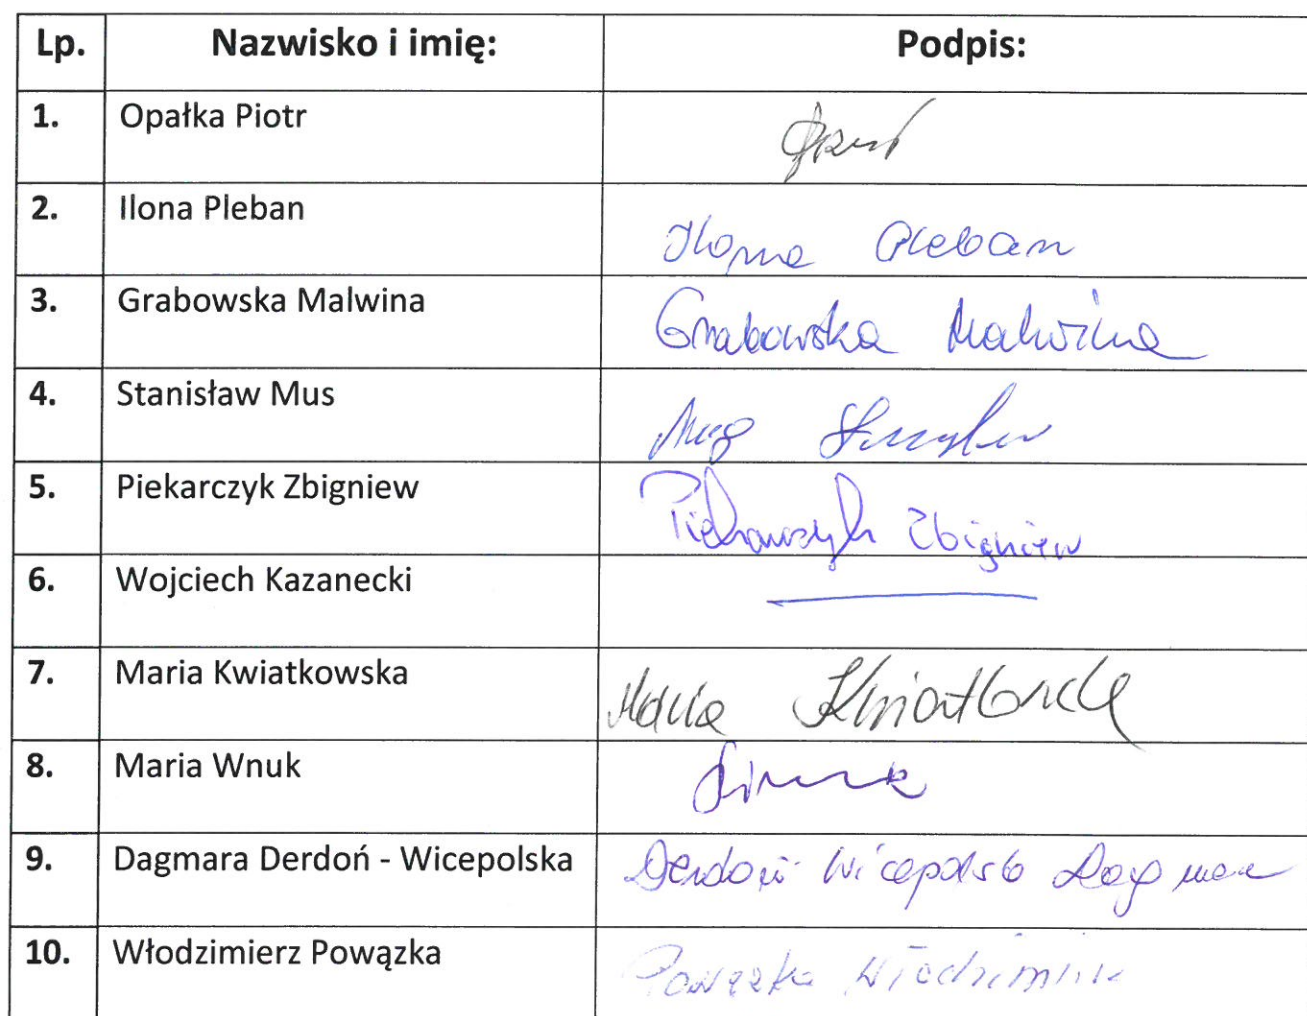 Lp. Nazwisko i imię: Podpis:
1. Opałka Piotr
2. Ilona Pleban Ilona Pleban
3. Grabowska Malwina Grabowska Malwina
4. Stanisław Mus Mus
5. Piekarczyk Zbigniew Piekarczyk Zbigniew
6. Wojciech Kazanecki
7. Maria Kwiatkowska Maria
8. Maria Wnuk
9. Dagmara Derdoń - Wicepolska Derdoń Wicepolska Dagmara
10. Włodzimierz Powązka Powązka Włodzimierz